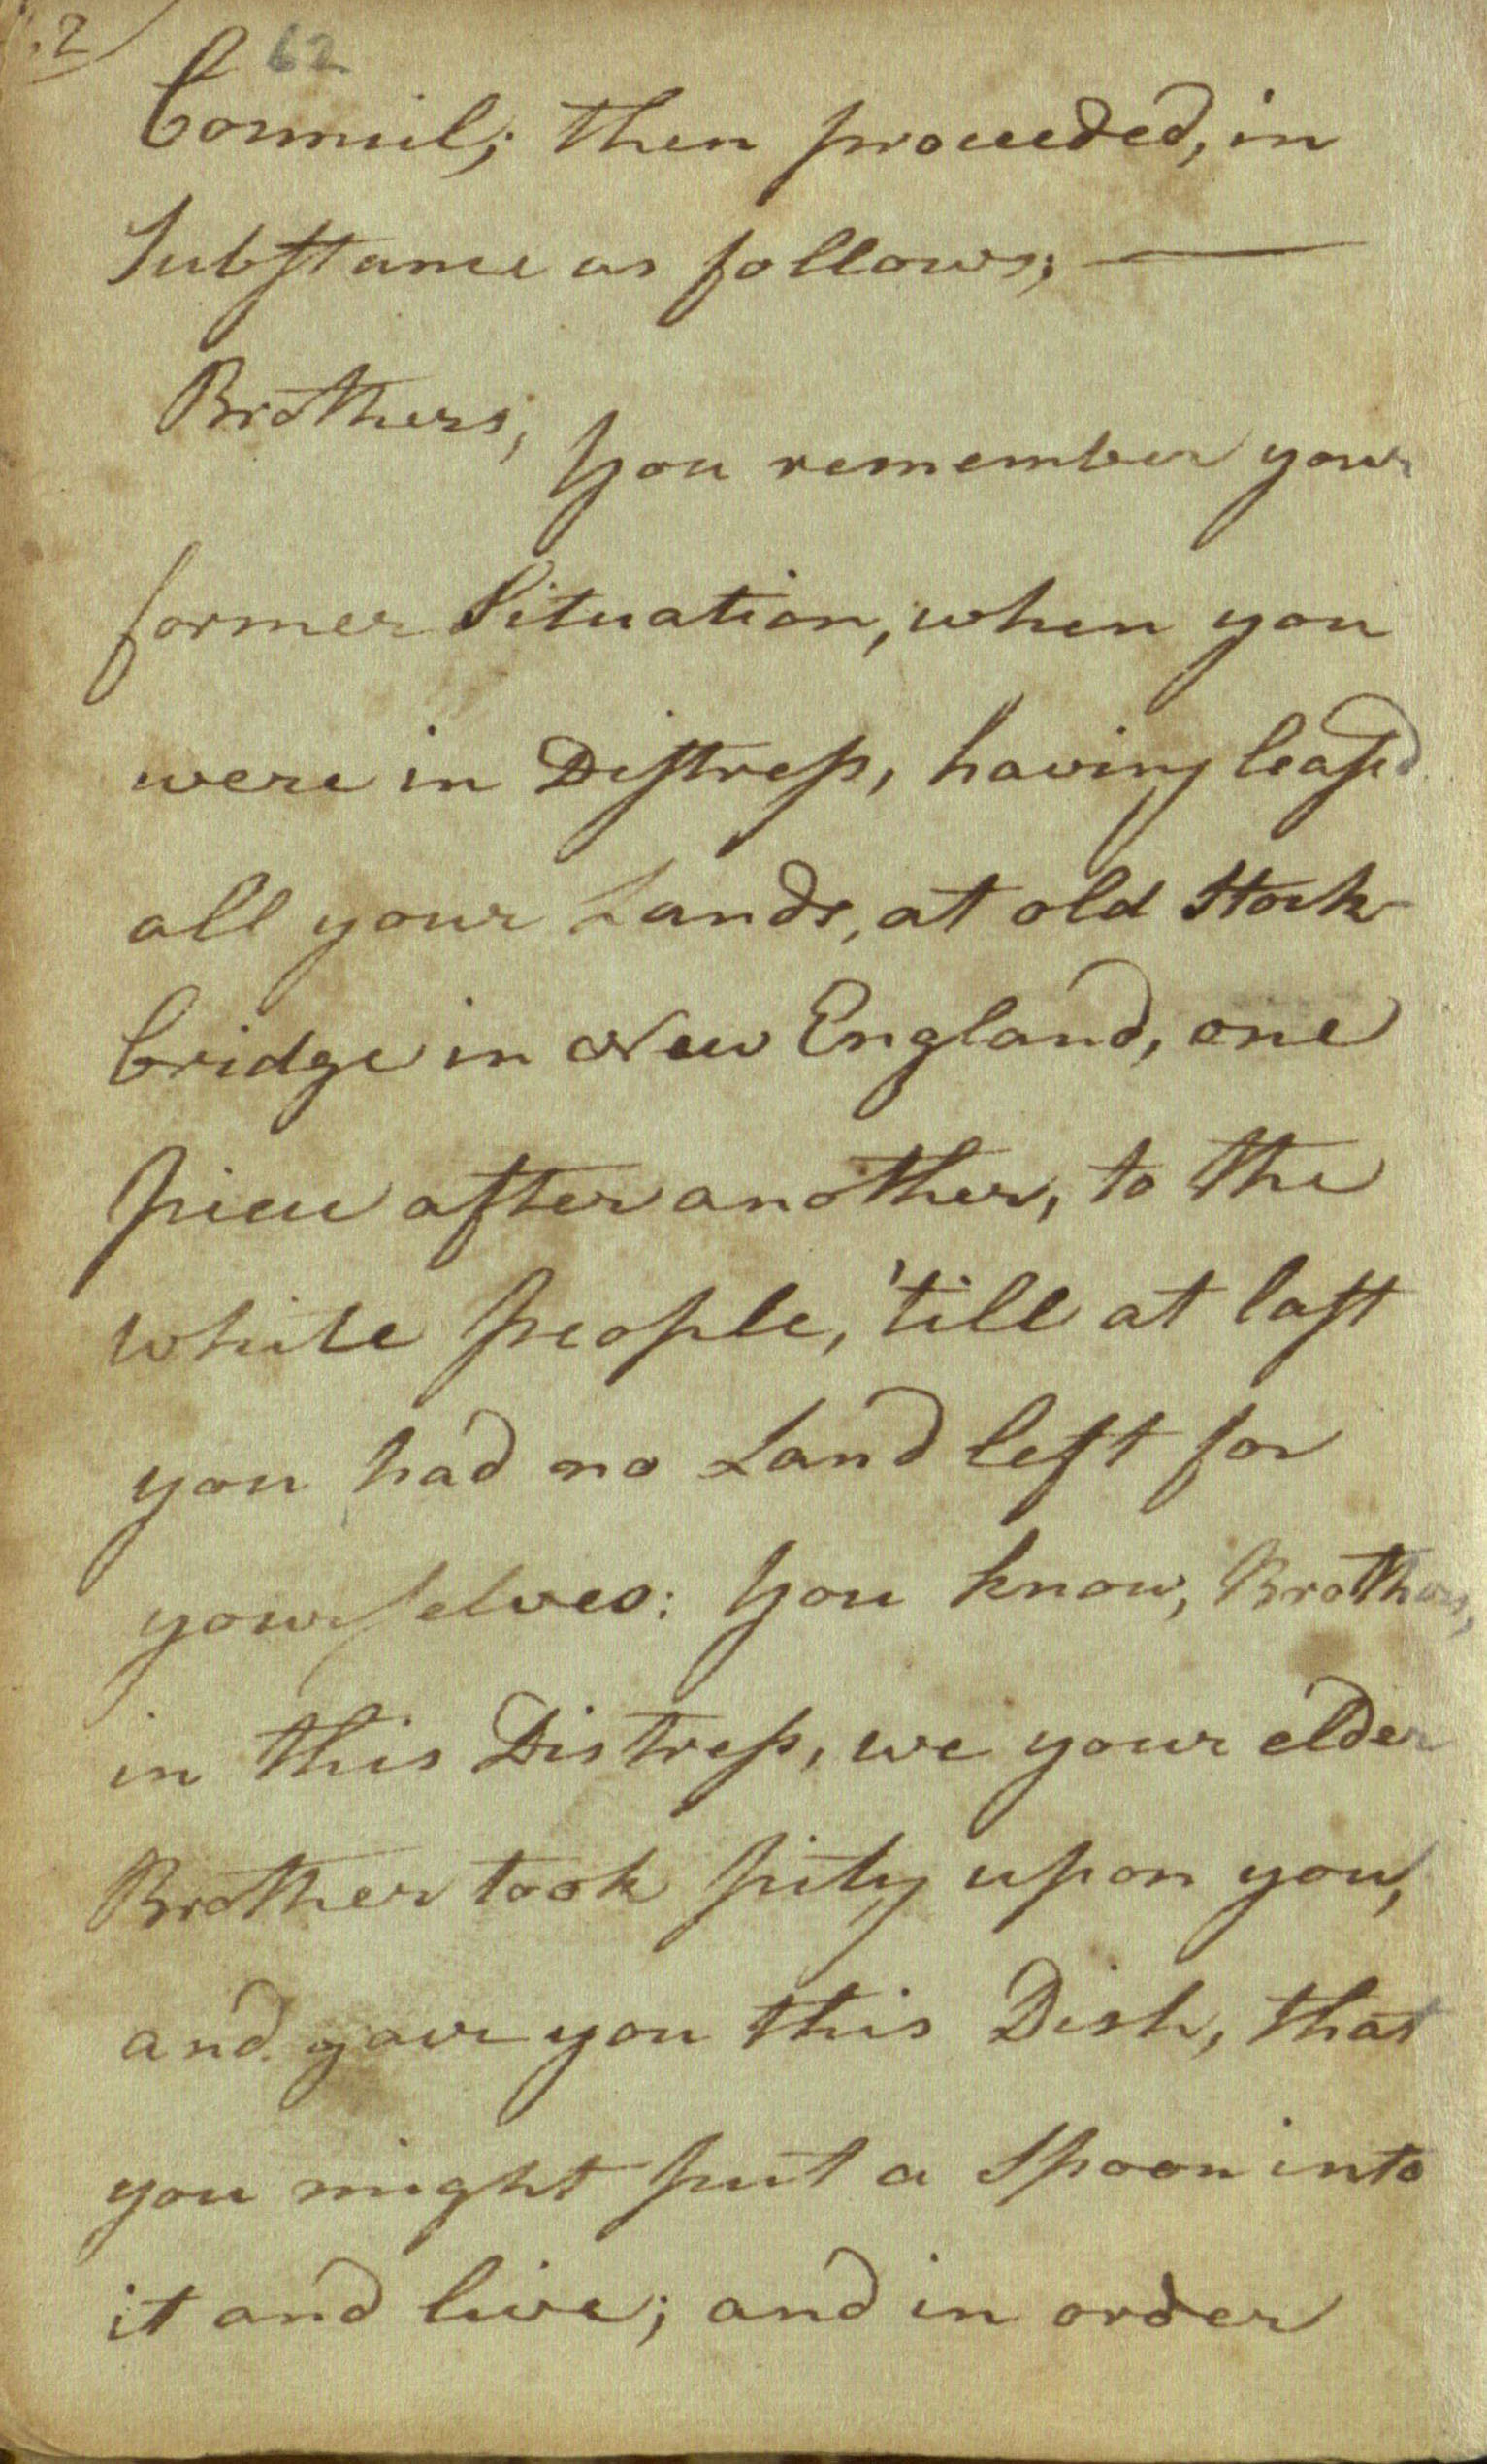 62
Council; then proceeded, in
Substance as follows; —
Brothers,
You remember your
former Situation, when you
were in Distress, having leas'd
all your Lands, at old Stock-
bridge in New England, one
piece after another, to the
white people, 'till at last
you had no Land left for
yourselves: You know, Brothers,
in this Distress, we your elder
Brother took pity upon you,
and gave you this Dish, that
you might put a Spoon into
it and live; and in order